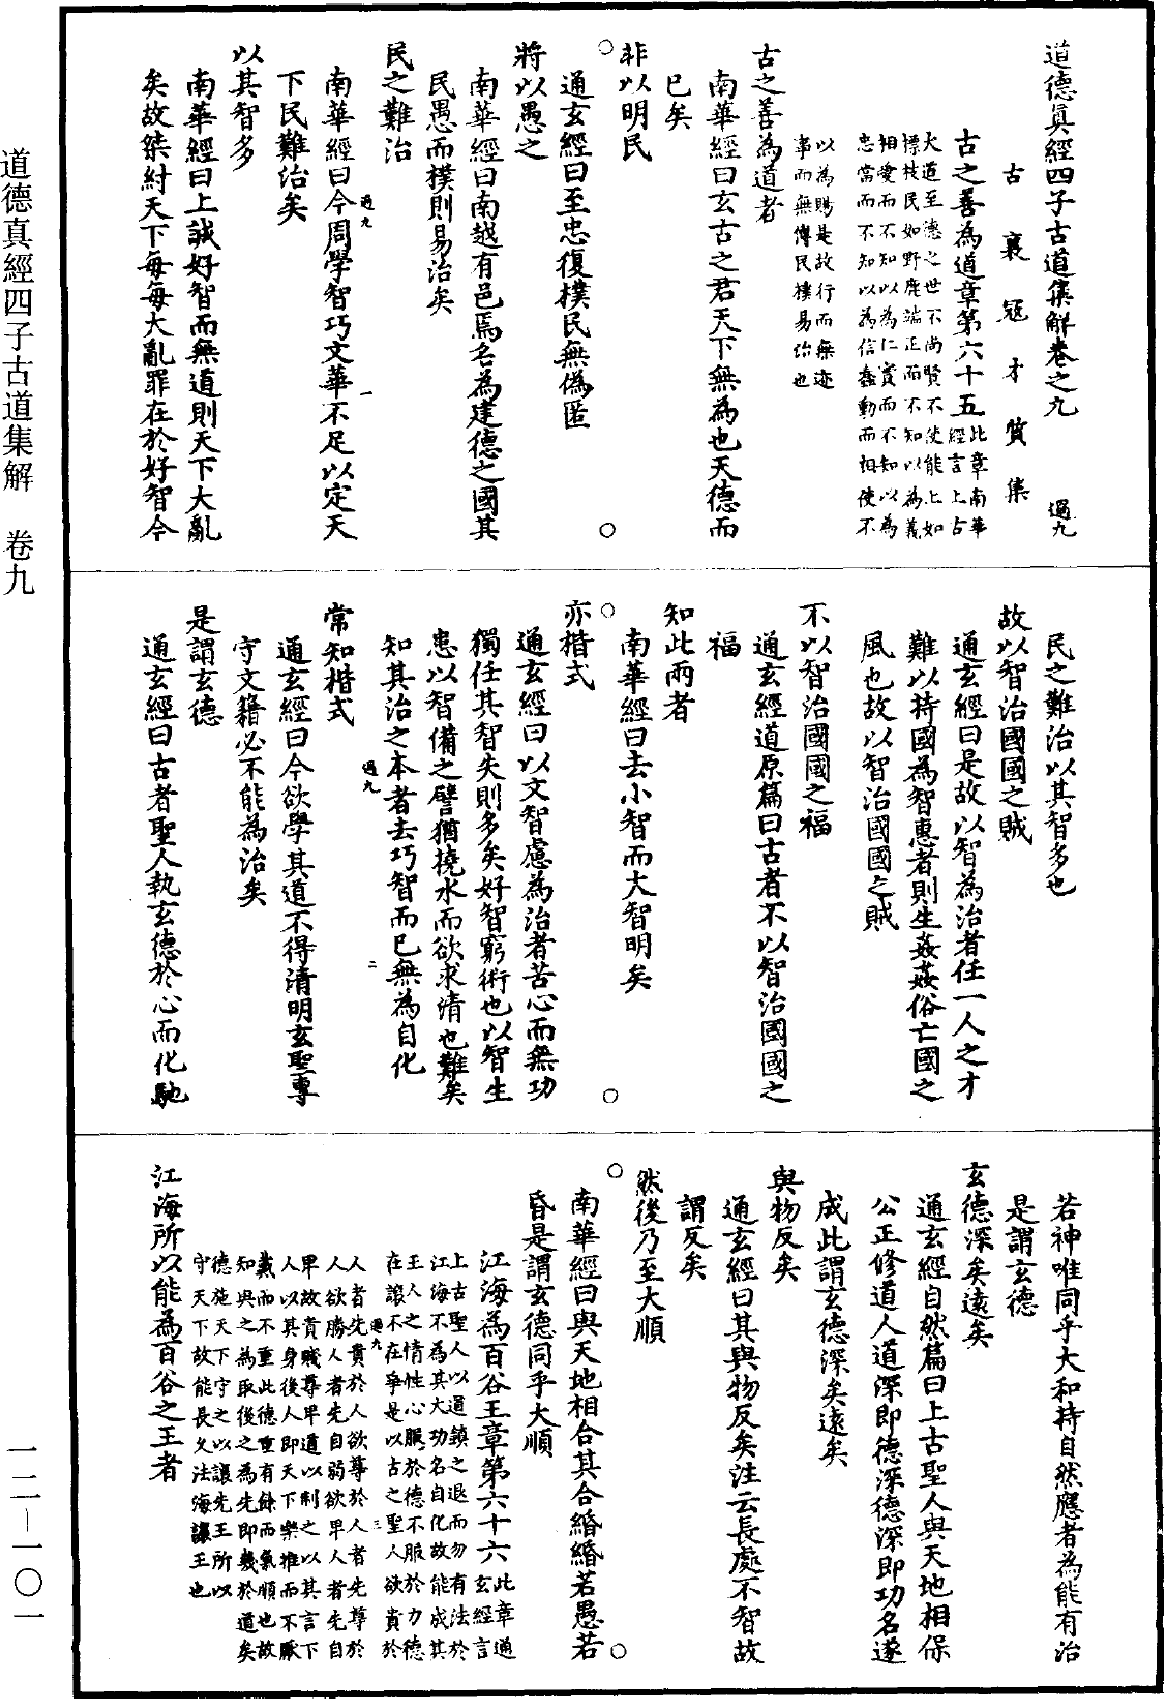 道德眞經四子古道集解卷之九 過九
古襄寇才質集
古之善為道章第六十五此章南華
經言上古
大道至德之世不尚賢不使能上如
標枝民如野鹿端正而不知以為義
相愛而不知以為仁實而不知以為
忠當而不知以為信蠢動而相使不
以為賜是故行而無迹
事而無傳民樸易治也
古之善為道者
南華經曰玄古之君天下無為也天德而
巳矣
非以明民
通玄經曰至忠復樸民無偽匿
將以愚之
南華經曰南越有邑焉名為建德之國其
民愚而樸則易治矣
民之難治
過九 一
南華經曰今周學智巧文華不足以定天
下民難治矣
以其智多
南華經曰上誠好智而無道則天下大亂
矣故桀紂天下每每大亂罪在於好智今
民之難治以其智多也
故以智治國國之賊
通玄經曰是故以智為治者任一人之才
難以持國為智惠者則生姦姦俗亡國之
風也故以智治國國之賊
不以智治國國之福
通玄經道原篇曰古者不以智治國國之
福
知此兩者
南華經曰去小智而大智明矣
亦楷式
通玄經曰以文智慮為治者苦心而無功
獨任其智失則多矣好智窮術也以智生
患以智備之譬猶撓水而欲求清也難矣
知其治之本者去巧智而巳無為自化
過九 二
常知楷式
通玄經曰今欲學其道不得清明玄聖專
守文籍必不能為治矣
是謂玄德
通玄經曰古者聖人執玄德於心而化馳
若神唯同乎大和持自然應者為能有治
是謂玄德
玄德深矣遠矣
通玄經自然篇曰上古聖人與天地相保
公正修道人道深即德深德深即功名遂
成此謂玄德深矣遠矣
與物反矣
通玄經曰其與物反矣注云長處不智故
謂反矣
然後乃至大順
南華經曰與天地相合其合緡緡若愚若
昏是謂玄德同乎大順
江海為百谷王章第六十六此章通
玄經言
上古聖人以道鎮之退而勿有法於
江海不為其大功名自化故能成其
王人之情性心服於德不服於力德
在讓不在爭是以古之聖人欲貴於
過九 三
人者先貴於人欲尊於人者先尊於
人欲勝人者先自弱欲卑人者先自
卑故貴賤尊卑道以制之以其言下
人以其身後人即天下樂推而不厭
戴而不重此德重有餘而氣順也故
知與之為取後之為先即幾於道矣
德施天下守之以讓先王所以
守天下故能長久法海讓王也
江海所以能為百谷之王者
道德真經四子古道集解 卷九
一二—一〇一